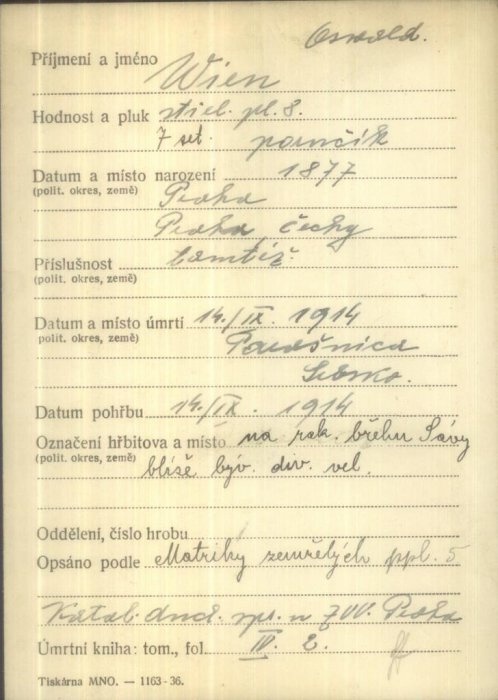 Oswald.
Příjmení a jméno Wien
Hodnost a pluk střel. pl. 8.
7 set. poručík
Datum a místo narození 1877
(polit. okres, země) Praha
Praha Čechy
Příslušnost tamtéž.
(polit. okres, země)
Datum a místo úmrtí 14./IX. 1914
(polit. okres, země) Parašnica
Srbsko.
Datum pohřbu 14./IX. 1914
Označení hřbitova a místo na rak. břehu Sávy
(polit. okres, země) blíže býv. div. vel.
Oddělení, číslo hrobu
Opsáno podle Matriky zemřelých ppl. 5
Katal. duch. spr. u ZVV. Praha
Úmrtní kniha: tom., fol. IV. 2.
Tiskárna MNO. — 1163-36.